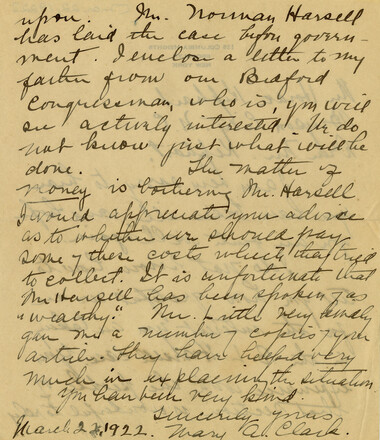 upon. Mr. Norman Harsell
has laid the case before govern-
ment. I enclose a letter to my
father from our Bedford
Congressman, who is, you will
see actively interested. We do
not know just what will be
done. The matter of
money is bothering Mr. Harsell.
I would appreciate your advice
as to whether we should pay
some of these costs which they tried
to collect. It is unfortunate that
Mr Harsell has been spoken of as
"wealthy." Mr. Little very kindly
gave me a number of copies of your
article. They have helped very
much in explaining the situation.
You have been very kind.
Sincerely yours
March 1922. Mary A. Clark.